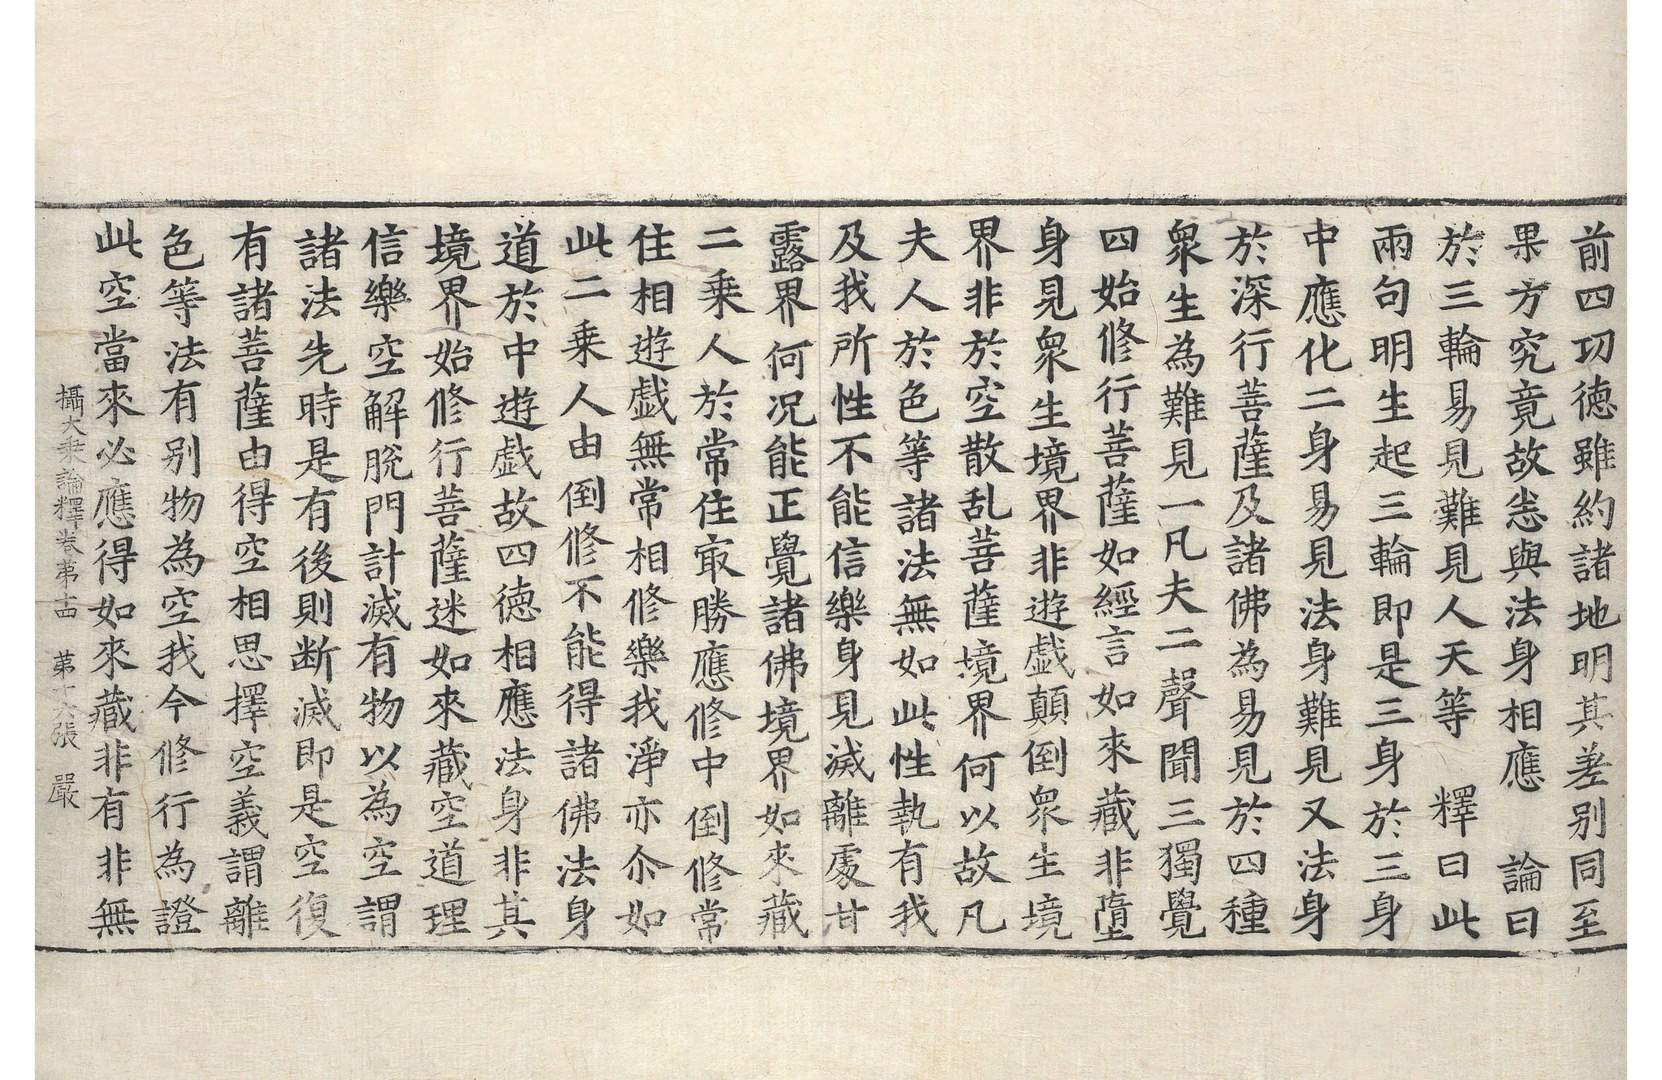 前四功德雖約諸地明其差別同至
果方究竟故恙與法身相應　論曰
於三輪易見難見人天等　釋曰此
兩句明生起三輪即是三身於三身
中應化二身易見法身難見又法身
於深行菩薩及諸佛為易見於四種
衆生為難見一凡夫二聲聞三獨覺
四始修行菩薩如經言如來藏非墮
身見衆生境界非遊戲顛倒衆生境
界非於空散乱菩薩境界何以故凡
夫人於色等諸法無如此性執有我
及我所性不能信樂身見滅離處甘
露界何况能正覺諸佛境界如來藏
二乗人於常住㝡勝應修中倒修常
住相遊戲無常相修樂我淨亦尒如
此二乗人由倒修不能得諸佛法身
道於中遊戲故四德相應法身非其
境界始修行菩薩迷如來藏空道理
信樂空解脫門計滅有物以為空謂
諸法先時是有後則断滅即是空復
有諸菩薩由得空相思擇空義謂離
色等法有別物為空我今修行為證
此空當來必應得如來藏非有非無
攝大乗論釋卷苐十四　苐十六張　嚴